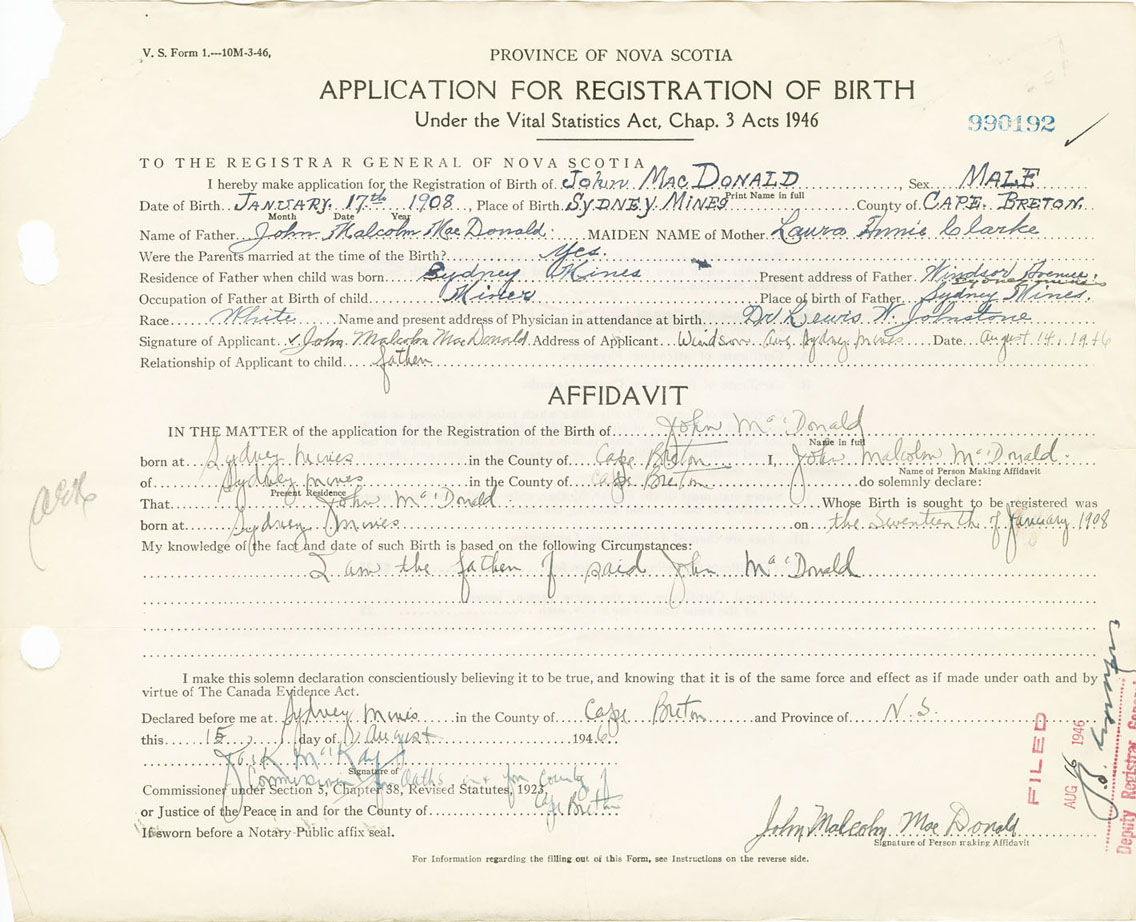 V. S. Form 1.---10M-3-46,
PROVINCE OF NOVA SCOTIA
APPLICATION FOR REGISTRATION OF BIRTH
Under the Vital Statistics Act, Chap. 3 Acts 1946
990192
TO THE REGISTRAR GENERAL OF NOVA SCOTIA
I hereby make application for the Registration of Birth of John MacDonald, Sex MALE
Print Name in full
Date of Birth JANUARY 17th 1908, Place of Birth SYDNEY MINES County of CAPE BRETON
Month Date Year
Name of Father John Malcolm MacDonald MAIDEN NAME of Mother Laura Annie Clarke
Were the Parents married at the time of the Birth? Yes.
Residence of Father when child was born Sydney Mines Present address of Father Windsor Avenue, Sydney Mines
Occupation of Father at Birth of child Miner Place of birth of Father Sydney Mines.
Race White Name and present address of Physician in attendance at birth Dr Lewis W. Johnstone
Signature of Applicant John Malcolm MacDonald Address of Applicant Windsor Ave, Sydney Mines Date August 14, 1946
Relationship of Applicant to child father
AFFIDAVIT
IN THE MATTER of the application for the Registration of the Birth of John McDonald
Name in full
born at Sydney Mines in the County of Cape Breton I, John Malcolm McDonald.
Name of Person Making Affidavit
of Sydney Mines in the County of Cape Breton do solemnly declare:
Present Residence
That John McDonald Whose Birth is sought to be registered was
born at Sydney Mines on the Seventeenth of January 1908
My knowledge of the fact and date of such Birth is based on the following Circumstances:
I am the father of said John McDonald
I make this solemn declaration conscientiously believing it to be true, and knowing that it is of the same force and effect as if made under oath and by
virtue of The Canada Evidence Act.
Declared before me at Sydney Mines in the County of Cape Breton and Province of N.S.
this 15 day of August 1946
McKay
Signature of
Commissioner of Oaths in & for County of
Commissioner under Section 5, Chapter 38, Revised Statutes, 1923,
Cape Breton
or Justice of the Peace in and for the County of
If sworn before a Notary Public affix seal.
John Malcolm MacDonald
Signature of Person making Affidavit
For Information regarding the filling out of this Form, see Instructions on the reverse side.
FILED
AUG 26 1946
Deputy Registrar General